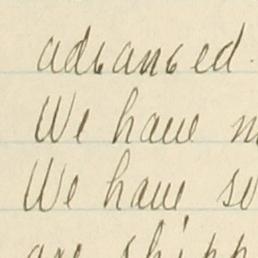 advanced.
We have
We have
are shipp